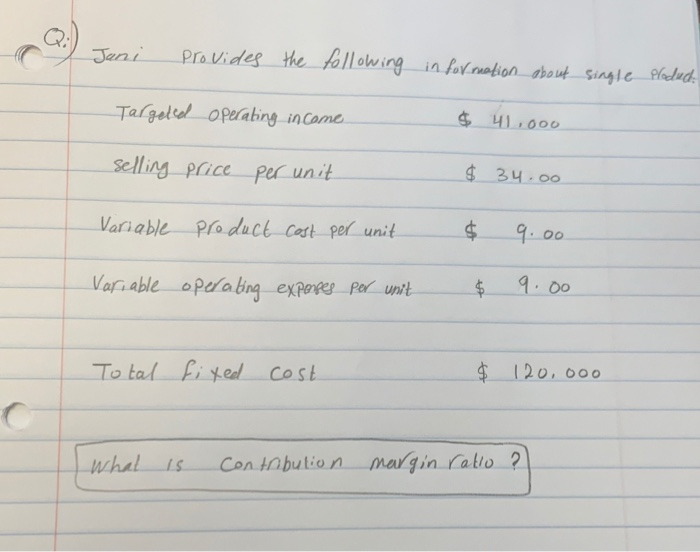 Q:) Jani provides the following information about single product.
Targeted operating income $ 41.000
selling price per unit $ 34.00
Variable product cost per unit $ 9.00
Variable operating expenses per unit $ 9.00
Total fixed cost $ 120.000
What is contribution margin ratio ?